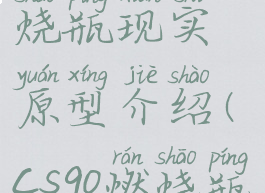 烧瓶现实
yuán xíng jiè shào
原型介绍(
rán shāo píng
CS90燃烧瓶